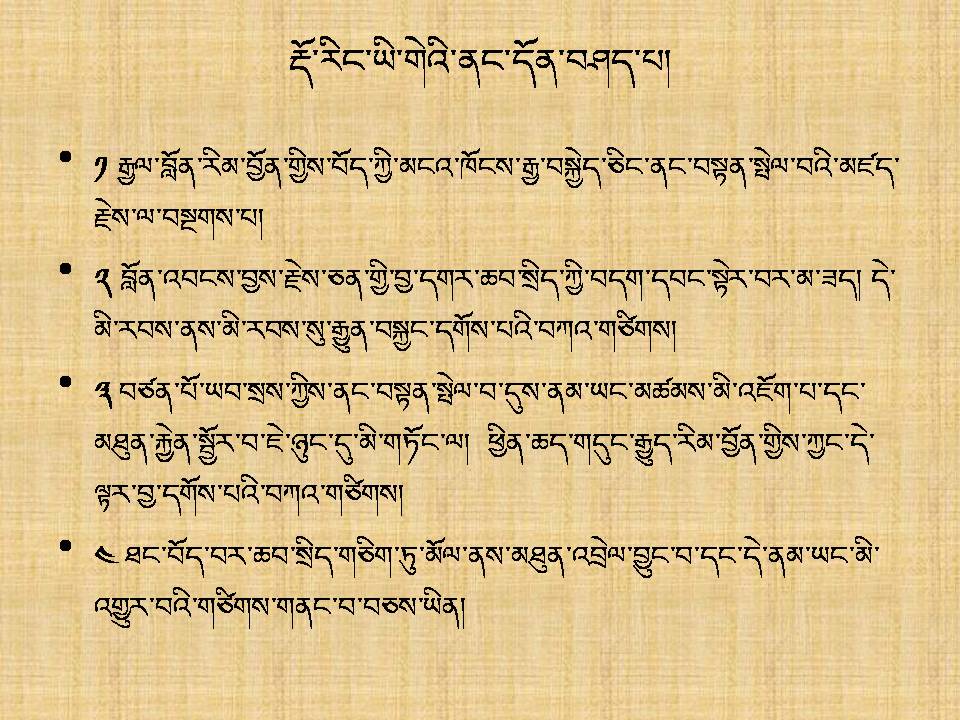 རྡོ་རིང་ཡི་གེའི་ནང་དོན་བཤད་པ།
• ༡ རྒྱལ་བློན་རིམ་བྱོན་གྱིས་བོད་ཀྱི་མངའ་ཁོངས་རྒྱ་བསྐྱེད་ཅིང་ནང་བསྟན་སྤེལ་བའི་མཛད་
རྗེས་ལ་བསྔགས་པ།
• ༢ བློན་འབངས་བྱས་རྗེས་ཅན་གྱི་བྱ་དགར་ཆབ་སྲིད་ཀྱི་བདག་དབང་སྟེར་བར་མ་ཟད། དེ་
མི་རབས་ནས་མི་རབས་སུ་རྒྱུན་བསྐྱང་དགོས་པའི་བཀའ་གཙིགས།
• ༣ བཙན་པོ་ཡབ་སྲས་ཀྱིས་ནང་བསྟན་སྤེལ་བ་དུས་ནམ་ཡང་མཚམས་མི་འཇོག་པ་དང་
མཐུན་རྐྱེན་སྦྱོར་བ་ཇེ་ཉུང་དུ་མི་གཏོང་ལ། ཕྱིན་ཆད་གདུང་རྒྱུད་རིམ་བྱོན་གྱིས་ཀྱང་དེ་
ལྟར་བྱ་དགོས་པའི་བཀའ་གཙིགས།
• ༤ ཐང་བོད་བར་ཆབ་སྲིད་གཅིག་ཏུ་མོལ་ནས་མཐུན་འབྲེལ་བྱུང་བ་དང་དེ་ནམ་ཡང་མི་
འགྱུར་བའི་གཙིགས་གནང་བ་བཅས་ཡིན།